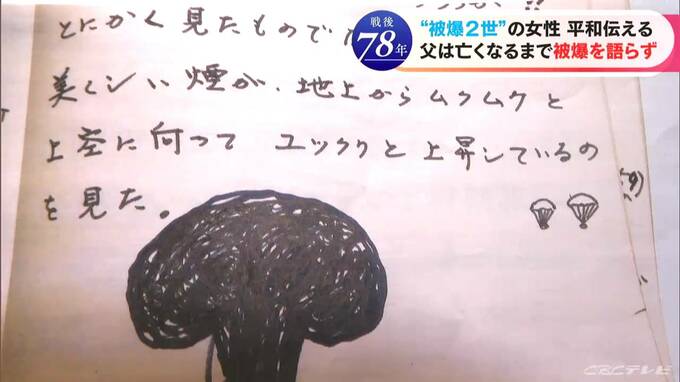 戦後
78年
“被爆2世”の女性 平和伝える
父は亡くなるまで被爆を語らず
とにかく見たもので
美しい煙が、地上からムクムクと
上空に向って ユックリと上昇しているの
を見た。
CBCテレビ